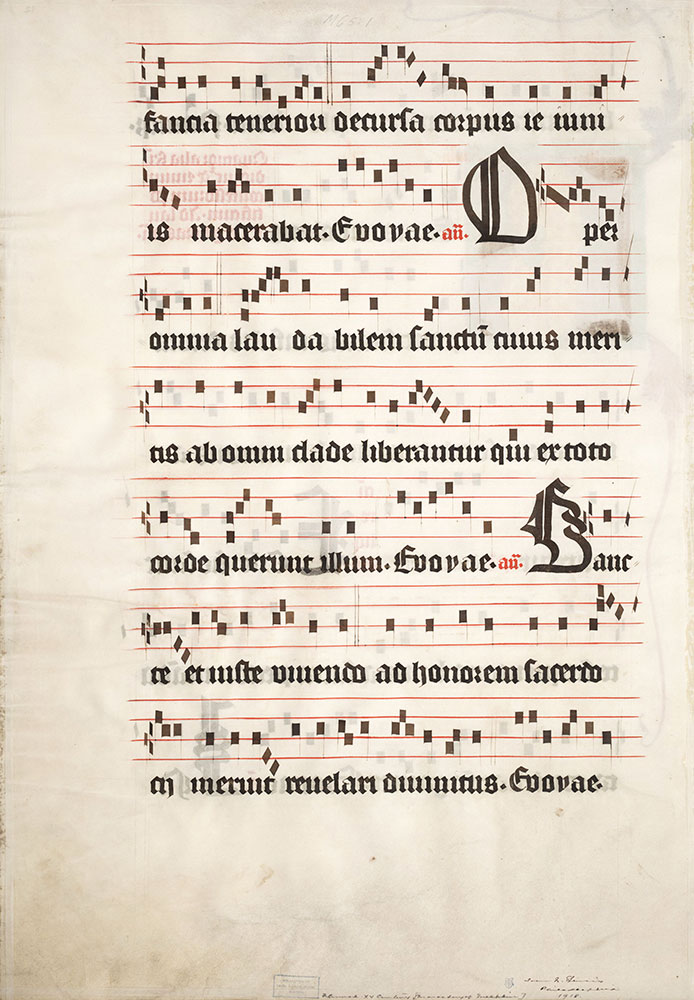 fancia teneriori decursa corpus ie iuni
is macerabat. Evovae. añ. O per
omnia lau da bilem sanctū cuius meri
tis ab omni clade liberantur qui ex toto
corde querunt illum. Evovae. añ. Sanc
te et iuste vivendo ad honorem sacerdo
cij meruit revelari divinitus. Evovae.
1910